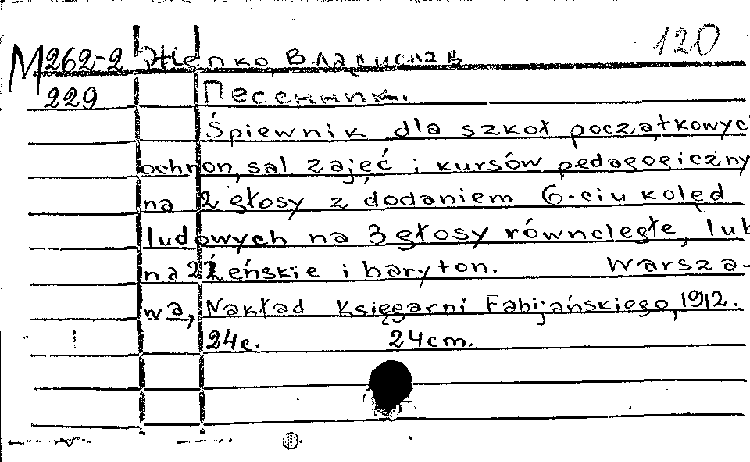 М262-2 Жепко, Владислав 120
229 Песенник.
Śpiewnik dla szkoł początkowyc
ochron, sal zajęć i kursów pedagogiczny
na 2 głosy z dodaniem 6-ciu kolęd
ludowych na 3 głosy równoległe, lub
na 2 żeńskie i baryton. Warsza-
wa, Nakład Księgarni Fabijańskiego, 1912.
24c. 24cm.